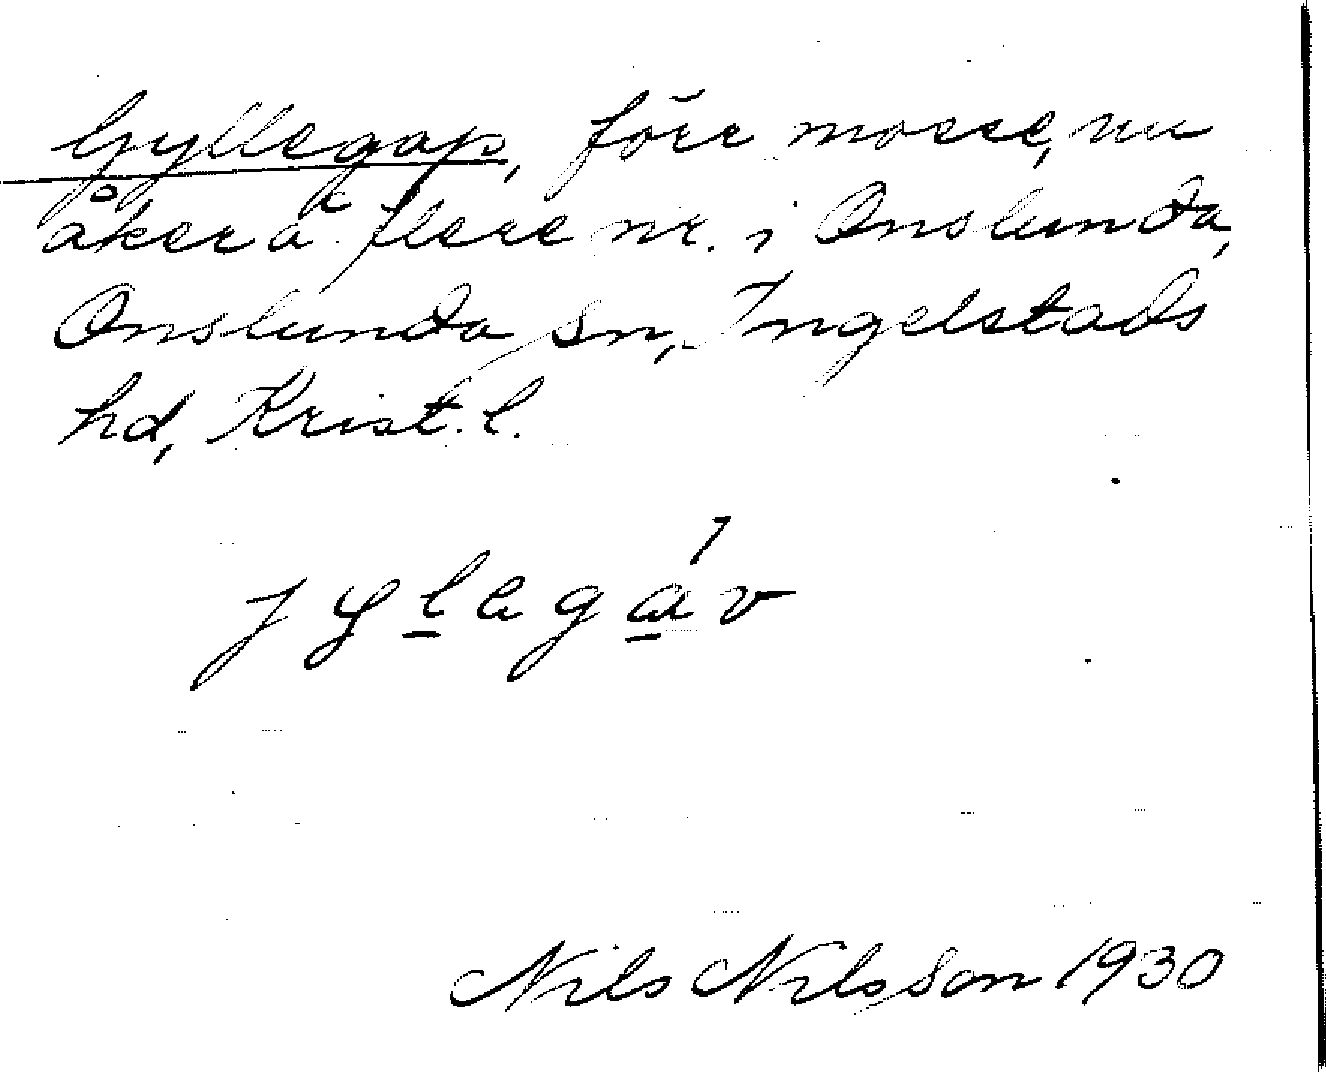 Gyllegap, förr mosse, nu
åker å flere nr. i Onslunda,
Onslunda sn, Ingelstads
hd, Krist. l.
jylegáv
Nils Nilsson 1930